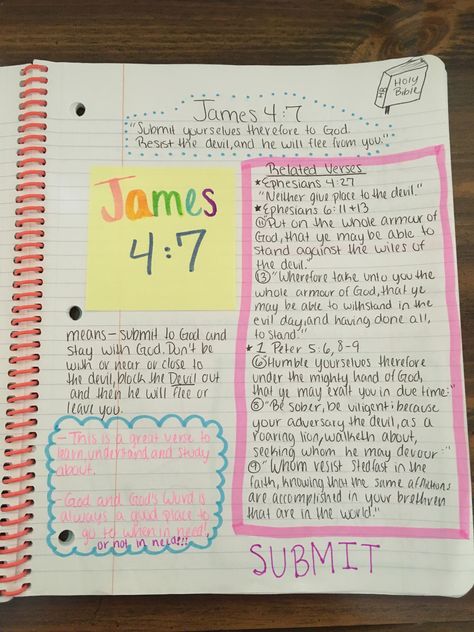 Holy
Bible
HB
James 4:7
"Submit yourselves therefore to God.
Resist the devil, and he will flee from you."
James
4:7
means - submit to God and
stay with God. Don't be
with or near or close to
the devil, block the Devil out
and then he will flee or
leave you.
- This is a great verse to
learn, understand, and study
about.
- God and God's Word is
always a good place to
go to when in need!
or not in need!!!
Related Verses
★Ephesians 4:27
"Neither give place to the devil."
★Ephesians 6:11+13
⑪Put on the whole armour of
God, that ye may be able to
stand against the wiles of
the devil."
⑬"Wherefore take unto you the
whole armour of God, that ye
may be able to withstand in the
evil day, and having done all,
to stand."
★1 Peter 5:6,8-9
⑥Humble yourselves therefore
under the mighty hand of God,
that ye may exalt you in due time:"
⑧"Be sober, be viligent; because
your adversary the devil, as a
roaring lion, walketh about,
seeking whom he may devour:"
⑨"Whom resist stedfast in the
faith, knowing that the same afflictions
are accomplished in your brethren
that are in the world."
SUBMIT